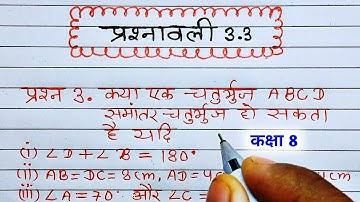 प्रश्नावली 3.3
प्रश्न 3. क्या एक चतुर्भुज ABCD
समांतर चतुर्भुज हो सकता
है यदि
कक्षा 8
(i) ∠D + ∠B = 180°
(ii) AB = DC = 8cm, AD = 4c cm
(iii) ∠A = 70° और ∠C =